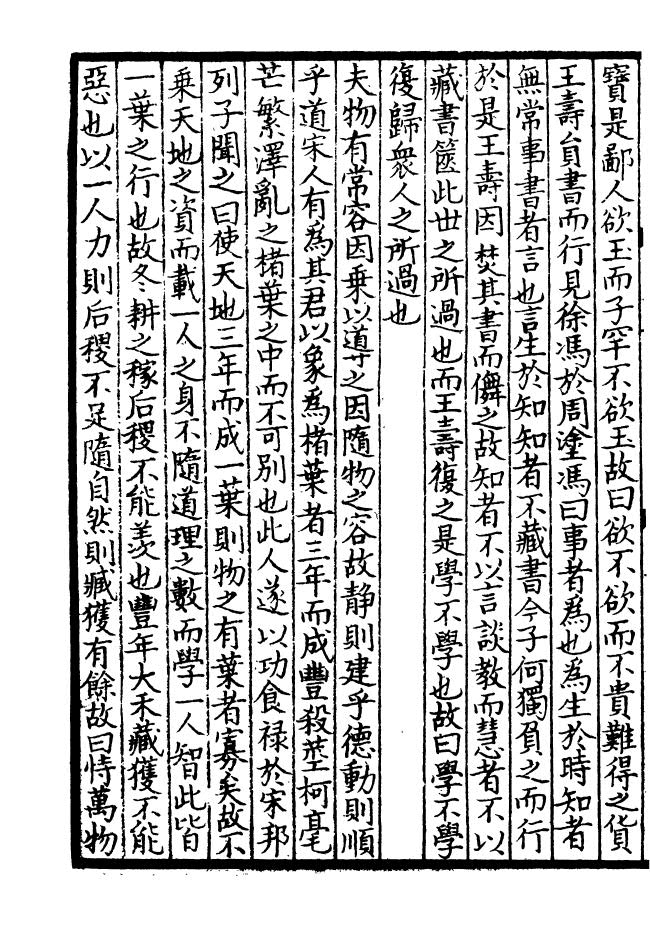 寶是鄙人欲玉而子罕不欲玉故曰欲不欲而不貴難得之貨
王壽負書而行見徐馮於周塗馮曰事者為也為生於時知者
無常事書者言也言生於知知者不藏書今子何獨負之而行
於是王壽因焚其書而儛之故知者不以言談教而慧者不以
藏書篋此世之所過也而王壽復之是學不學也故曰學不學
復歸衆人之所過也
夫物有常容因乗以導之因隨物之容故静則建乎德動則順
乎道宋人有為其君以象為楮葉者三年而成豐殺莖柯毫
芒繁澤亂之楮葉之中而不可别也此人遂以功食禄於宋邦
列子聞之曰使天地三年而成一葉則物之有葉者寡矣故不
乗天地之資而載一人之身不隨道理之數而學一人智此皆
一葉之行也故冬耕之稼后稷不能羡也豐年大禾藏獲不能
惡也以一人力則后稷不足隨自然則臧獲有餘故曰恃萬物